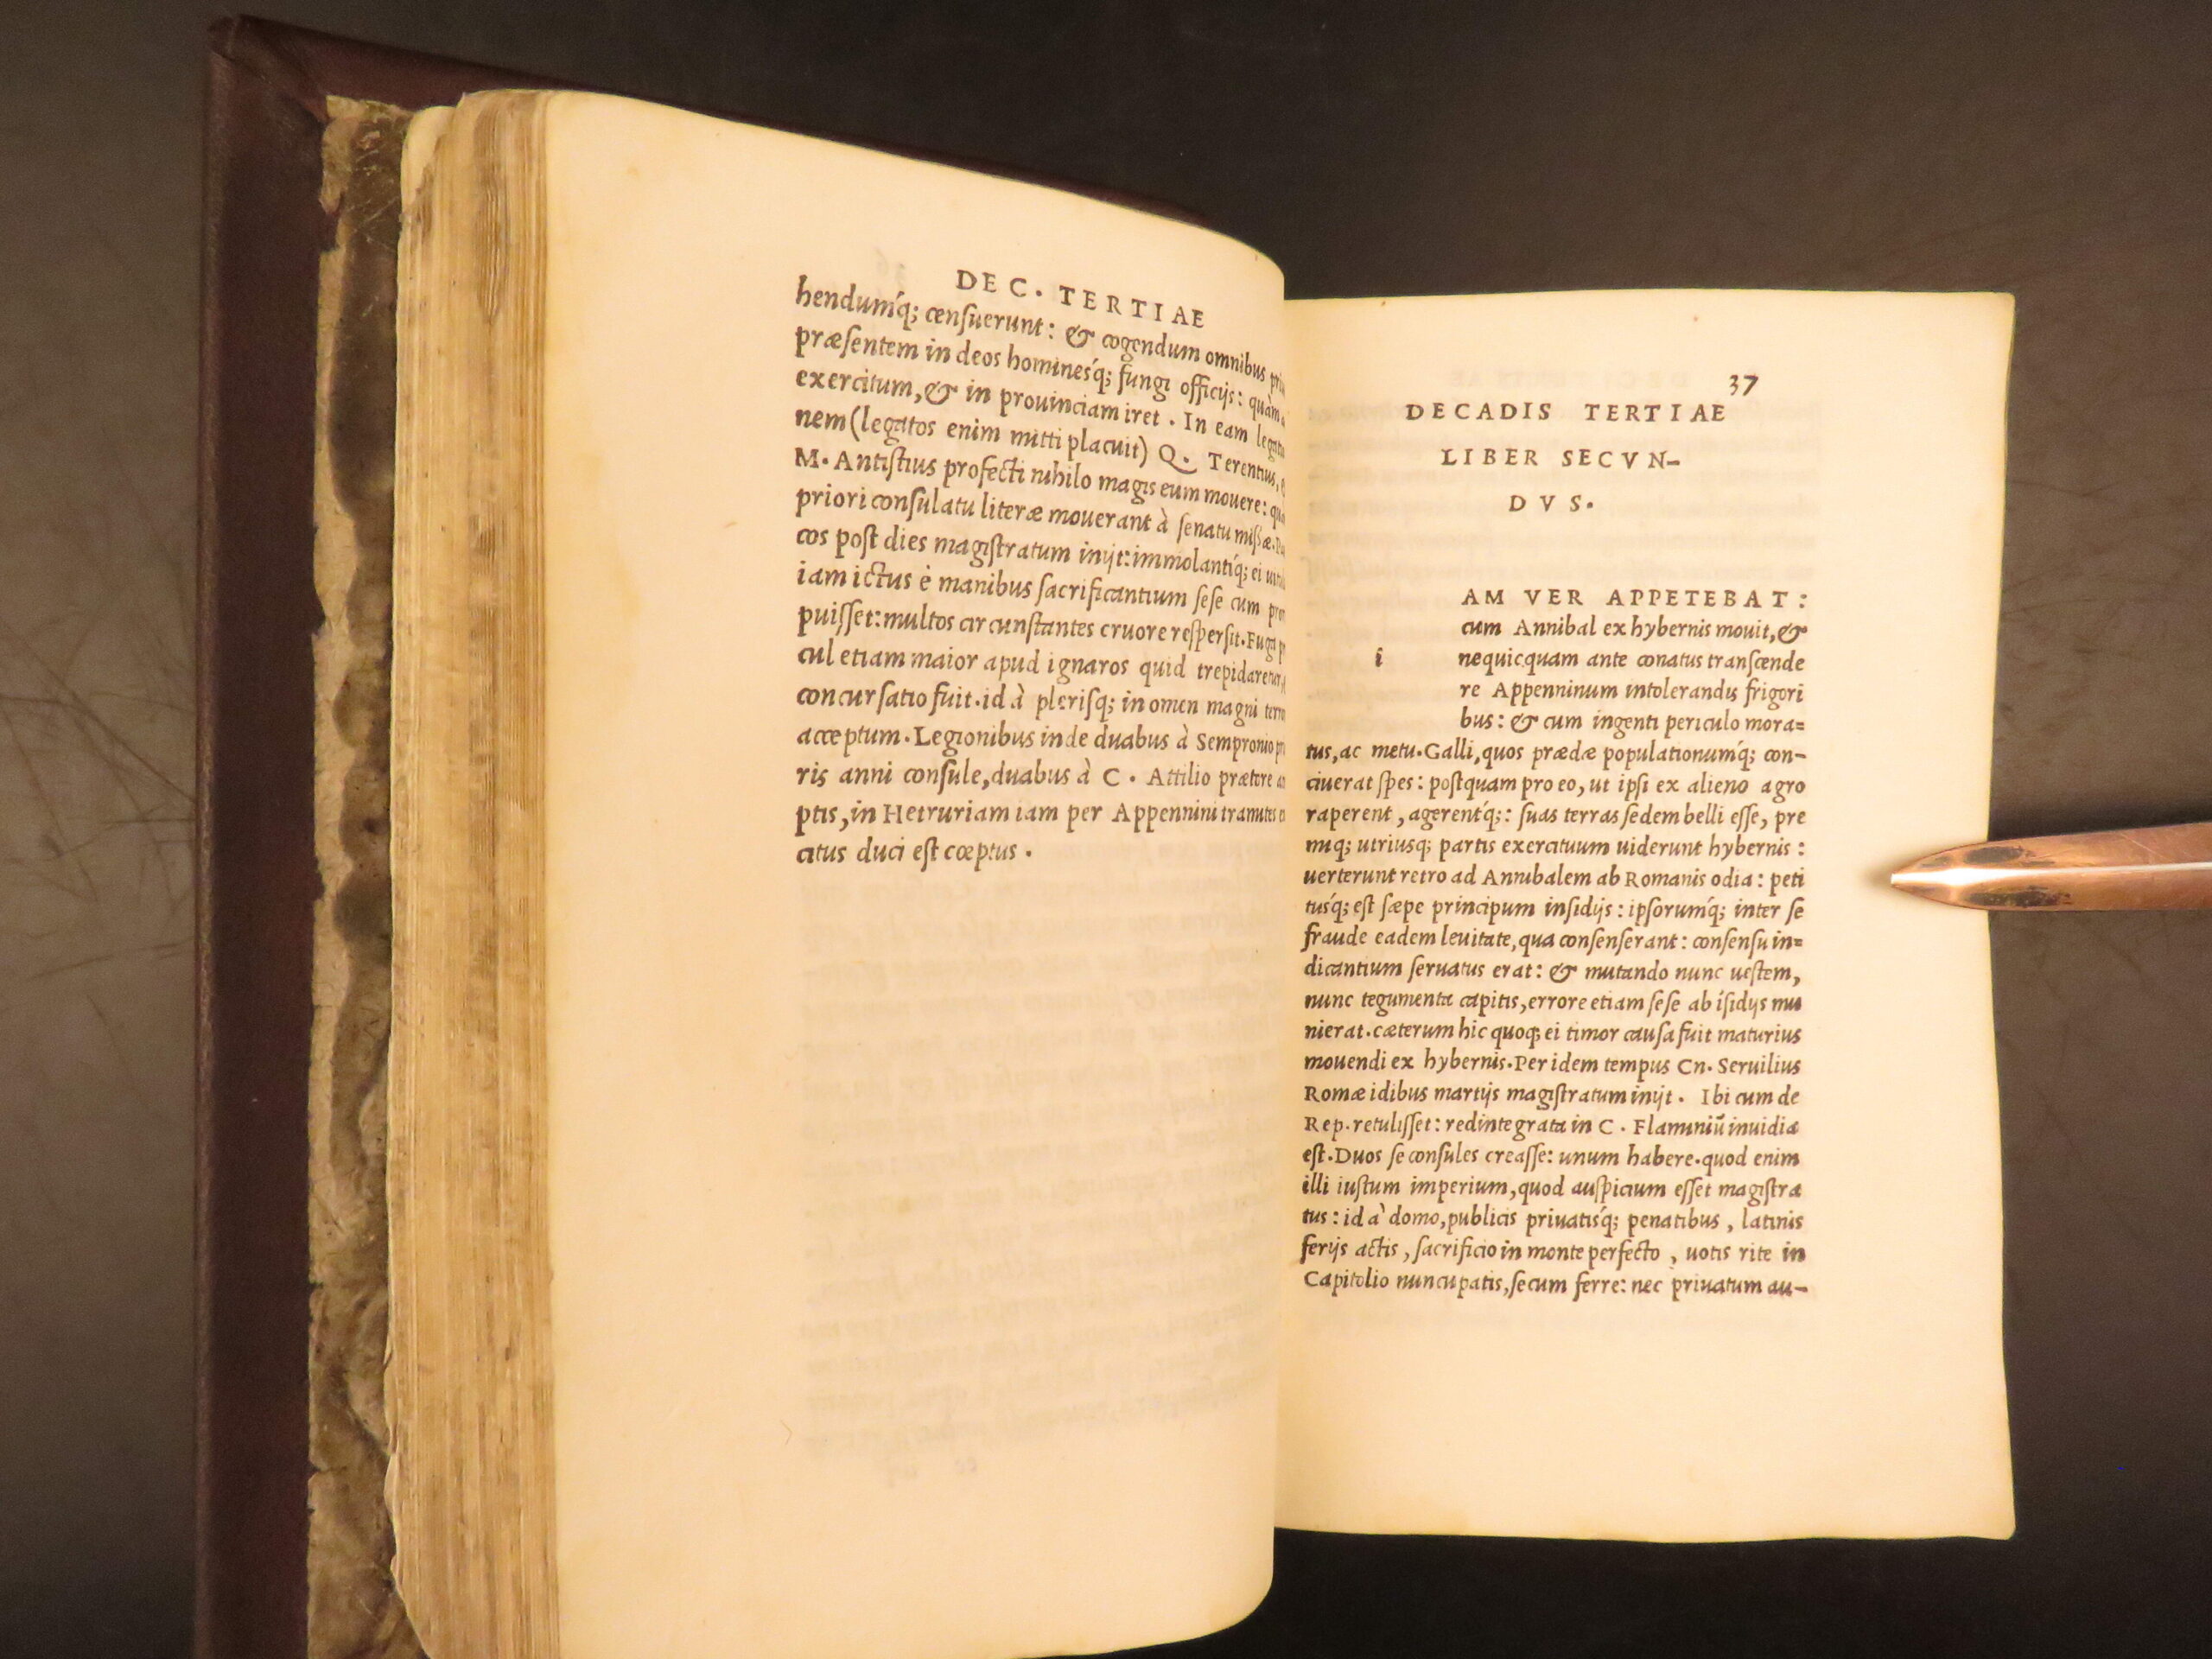 DEC. TERTIAE
hendumq́; censuerunt: & cogendum omnibus
præsentem in deos hominesq́; fungi officijs: quàm
exercitum, & in prouinciam iret. In eam
nem (legatos enim mitti placuit) Q. Terentius,
M. Antistius profecti nihilo magis eum mouere:
priori consulatu literæ mouerant à senatu missæ.
cos post dies magistratum inijt: immolantiq́; ei
iam ictus è manibus sacrificantium sese cum
puisset: multos circunstantes cruore respersit. Fuga
cul etiam maior apud ignaros quid trepidaretur,
concursatio fuit. id à plerisq; in omen magni
acceptum. Legionibus inde duabus à Sempronio
ris anni consule, duabus à C. Attilio prætore
ptis, in Hetruriam iam per Appennini tramites
citus duci est cœptus.
37
DECADIS TERTIAE
LIBER SECVN-
DVS.
AM VER APPETEBAT:
cum Annibal ex hybernis mouit, &
i nequicquam ante conatus transcende
re Appenninum intolerandis frigori
bus: & cum ingenti periculo mora=
tus, ac metu. Galli, quos prædæ populationumq́; con-
ciuerat spes: postquam pro eo, ut ipsi ex alieno agro
raperent, agerentq́;: suas terras sedem belli esse, pre
miq; utriusq; partis exercituum uiderunt hybernis:
uerterunt retro ad Annibalem ab Romanis odia: peti
tusq́; est sæpe principum insidijs: ipsorumq́; inter se
fraude eadem leuitate, qua consenserant: consensu in=
dicantium seruatus erat: & mutando nunc uestem,
nunc tegumenta capitis, errore etiam sese ab ísidijs mu
nierat. cæterum hic quoq; ei timor causa fuit maturius
mouendi ex hybernis. Per idem tempus Cn. Seruilius
Romæ idibus martijs magistratum inijt. Ibi cum de
Rep. retulisset: redintegrata in C. Flaminiū inuidia
est. Duos se consules creasse: unum habere. quod enim
illi iustum imperium, quod auspicium esset magistra
tus: id à domo, publicis priuatisq́; penatibus, latinis
ferijs actis, sacrificio in monte perfecto, uotis rite in
Capitolio nuncupatis, secum ferre: nec priuatum au-